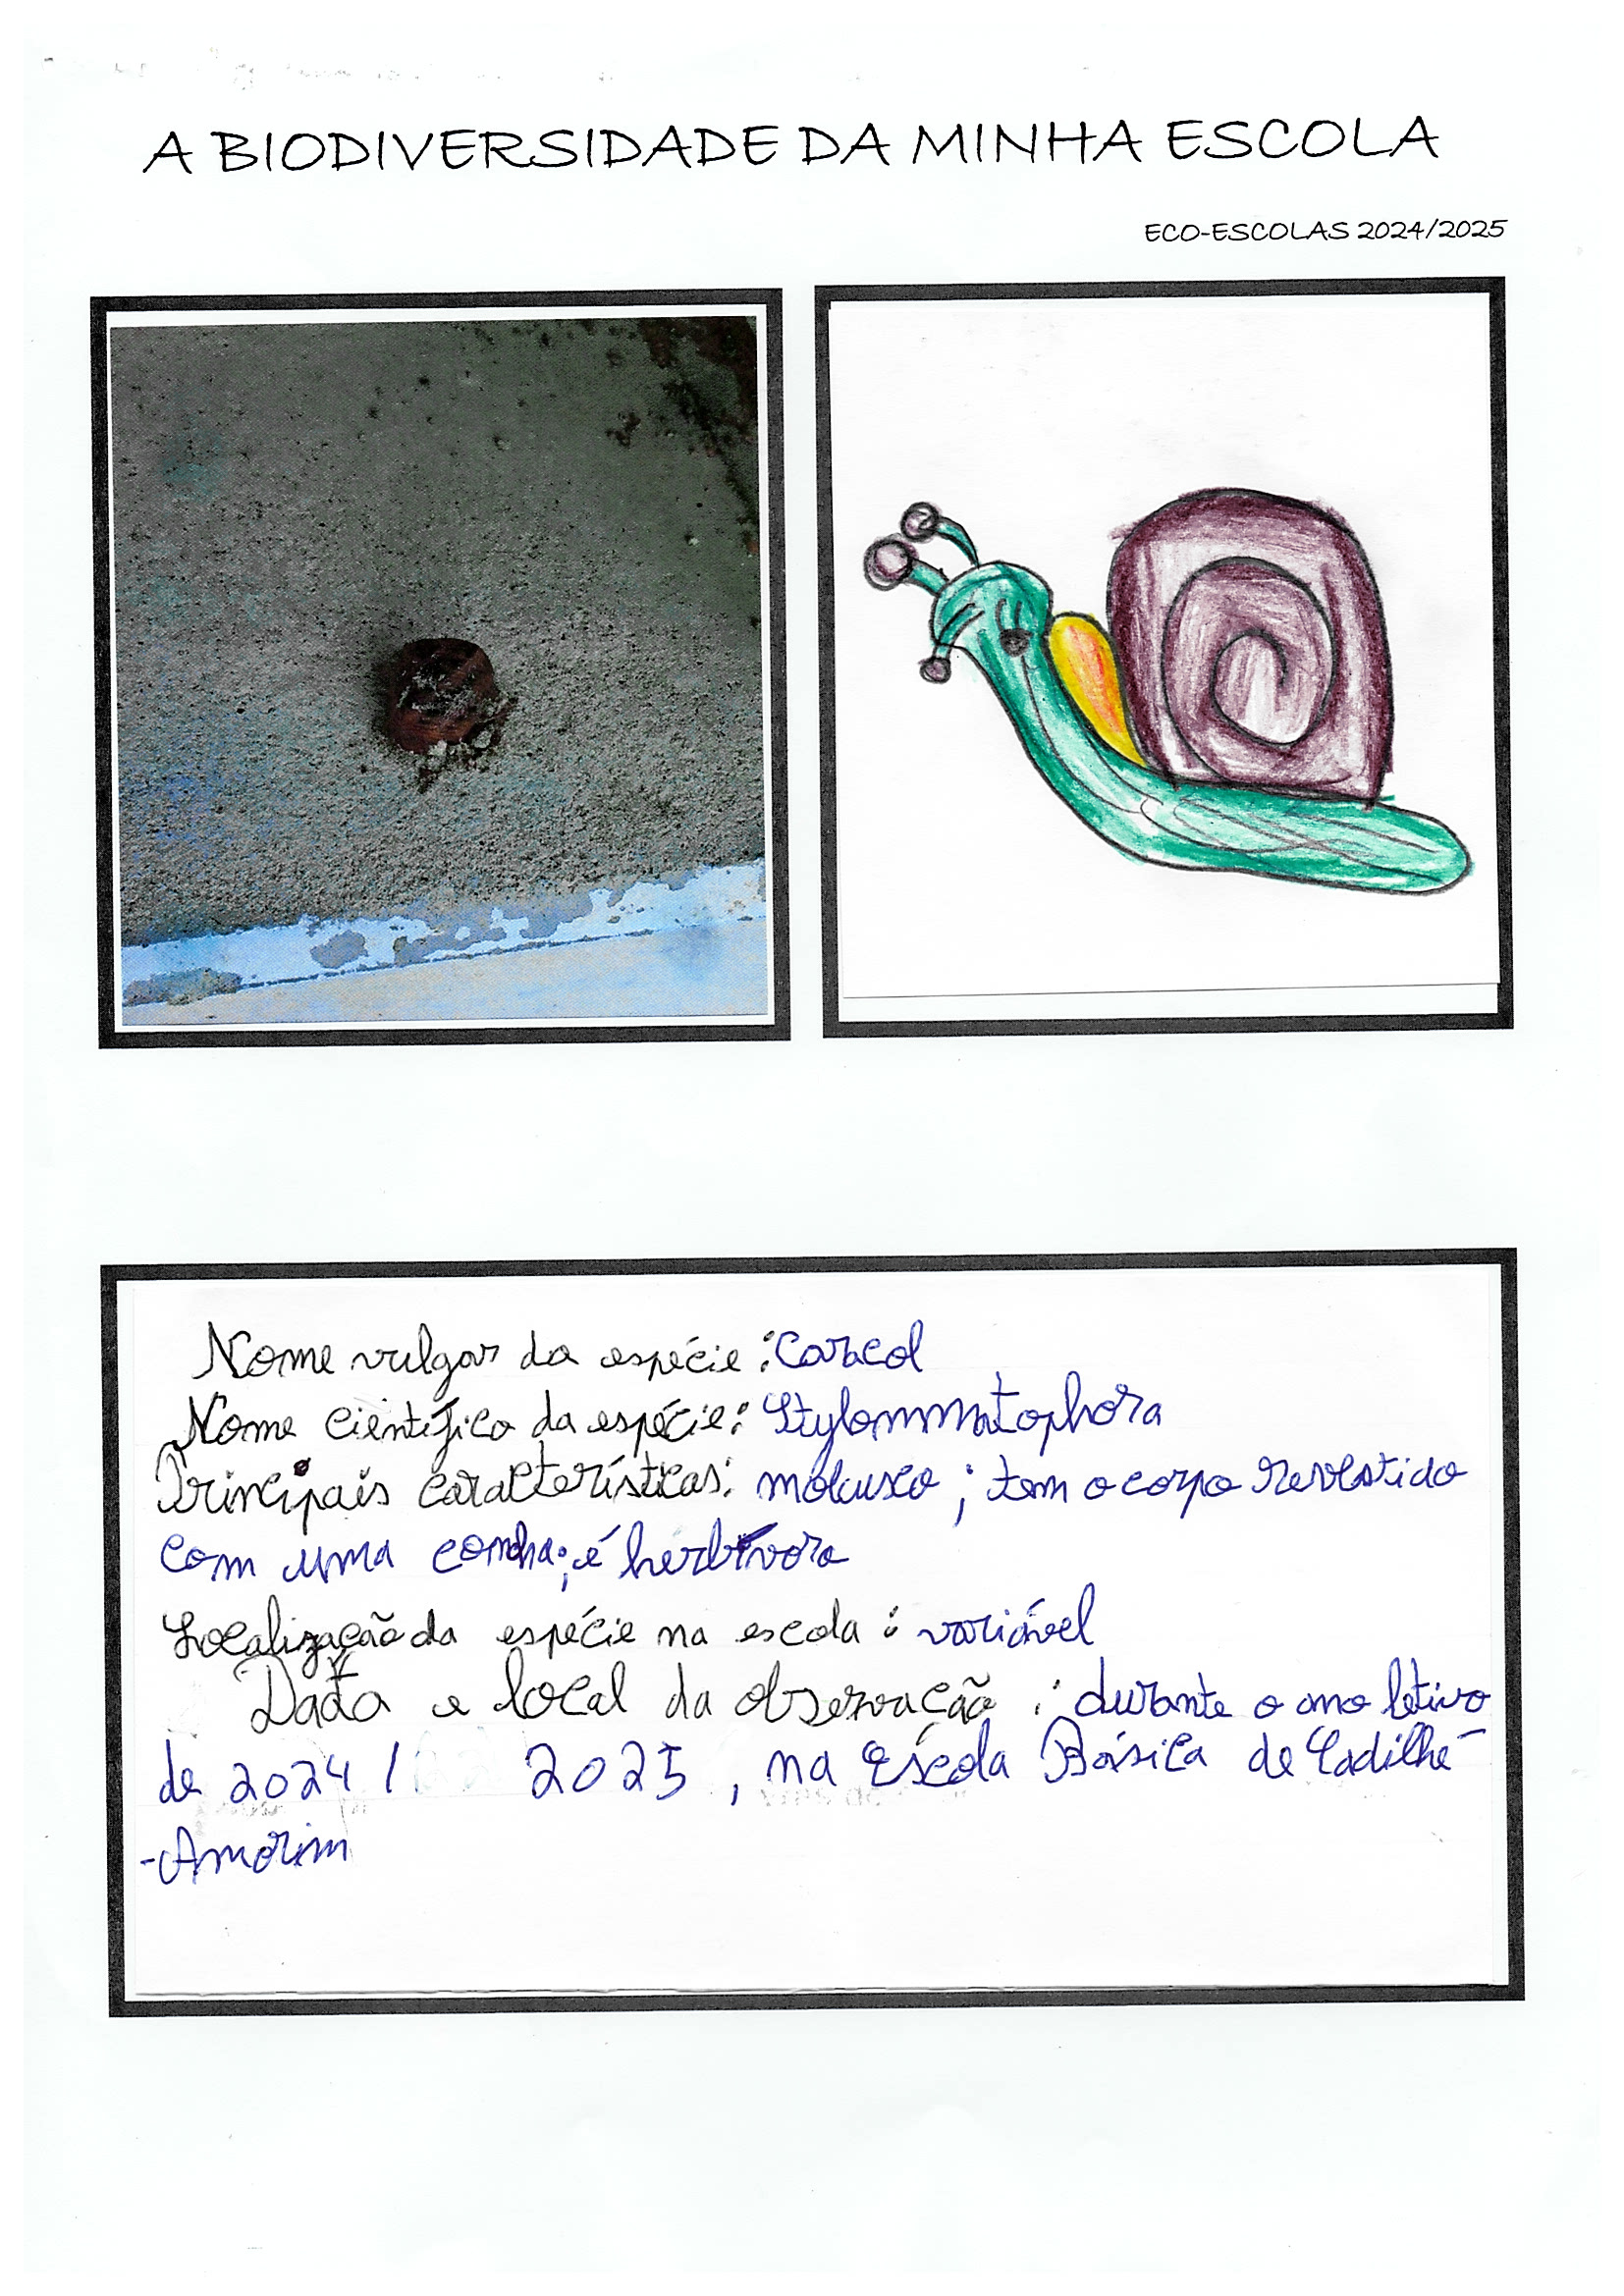 A BIODIVERSIDADE DA MINHA ESCOLA
ECO-ESCOLAS 2024/2025
Nome vulgar da espécie : Caracol
Nome científico da espécie: Stylommatophora
Principais características: molusco ; tem o corpo revestido
com uma concha ; é herbívora
Localização da espécie na escola : variável
Data e local da observação : durante o ano letivo
de 2024 / 2025 , na Escola Básica de Cadilhe
-Amorim